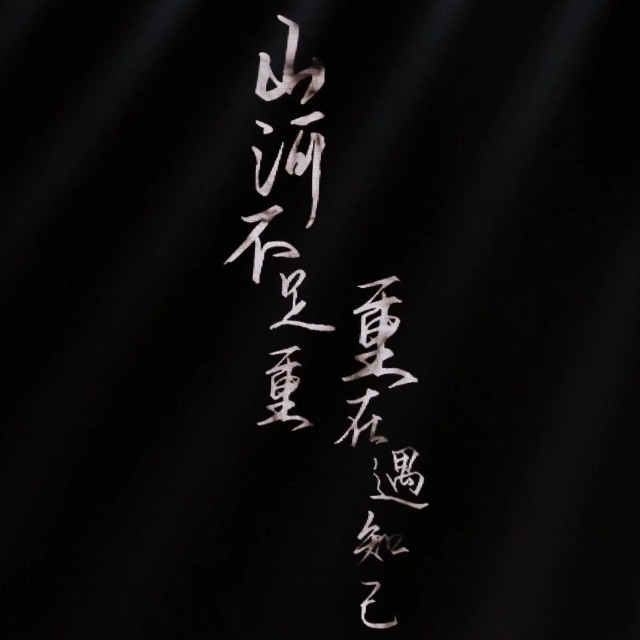 山河不足重
重在遇知己